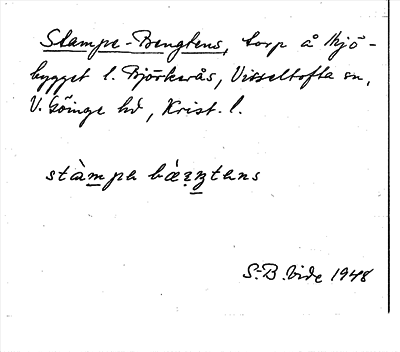 Stampe-Bengtens, torp å Mjö-
bygget l. Björkerås, Visseltofta sn,
V. Göinge hd, Krist. l.
stàmpa bæ̀ŋtens
S-B. Vide 1948